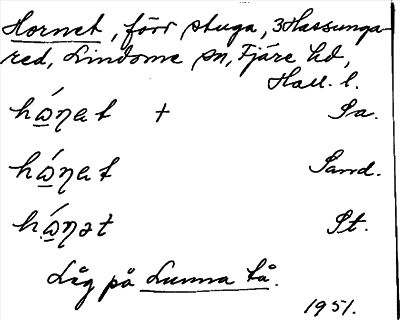 Hornet, förr stuga, 3 Hassunga-
red, Lindome sn, Fjäre hd,
Hall. l.
hó̲ŋat + Sa.
hó̲ŋat Sand.
hó̲ŋət St.
Låg på Lunna tå.
1951.